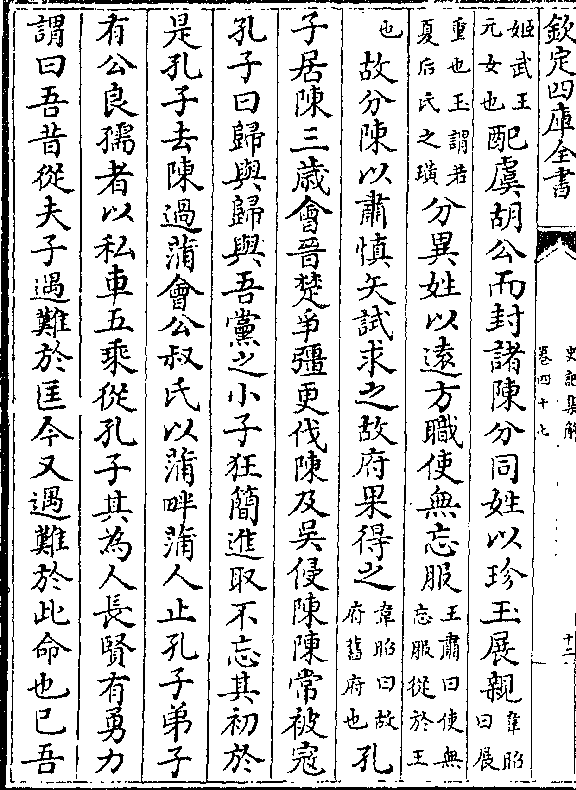 欽定四庫全書
史記集解
卷四十七
十二
姬武王元女也配虞胡公而封諸陳分同姓以珍玉展親韋昭曰展
重也玉謂若夏后氏之璜分異姓以遠方職使無忘服王肅曰使無忘服從於王
也故分陳以肅慎矢試求之故府果得之韋昭曰故府舊府也孔
子居陳三歲會晉楚爭彊更伐陳及吳侵陳陳常被寇
孔子曰歸與歸與吾黨之小子狂簡進取不忘其初於
是孔子去陳過蒲會公叔氏以蒲畔蒲人止孔子弟子
有公良孺者以私車五乘從孔子其為人長賢有勇力
謂曰吾昔從夫子遇難於匡今又遇難於此命也已吾